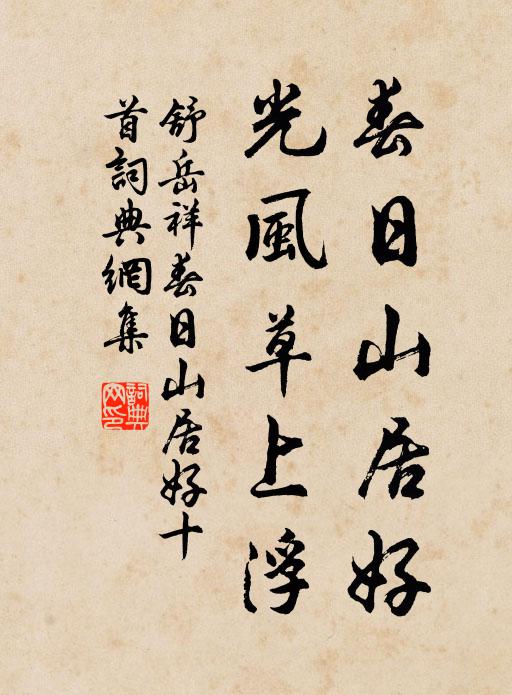 春日山居好
光風草上浮
舒岳祥春日山居好十
首詞典網集
詞典
网印